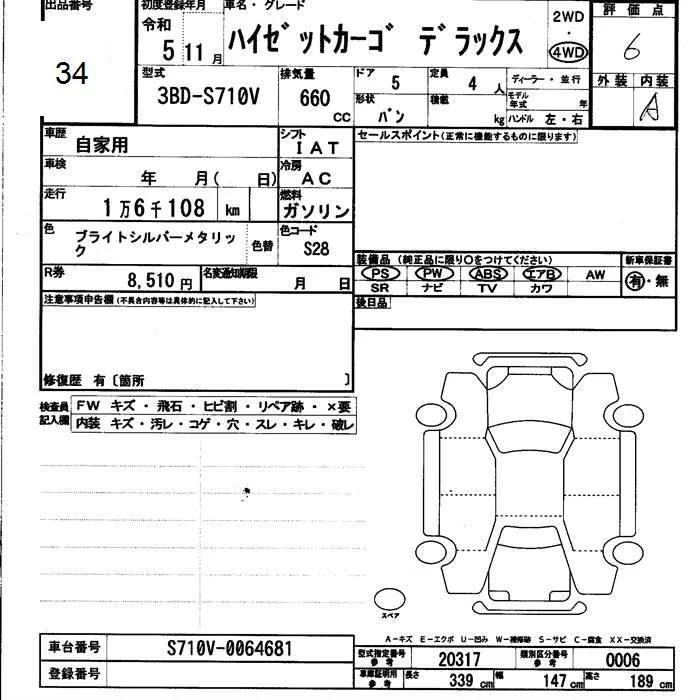 出品番号
34
初度登録年月
令和
5 11 月
車名・グレード
ハイゼットカーゴ デラックス
2WD
・
4WD
評価点
6
型式
3BD-S710V
排気量
660 CC
ドア 5
定員 4 人
形状 バン
積載 kg
ディーラー・並行
モデル年式 年
ハンドル 左・右
外装 内装
A
車歴 自家用
シフト IAT
セールスポイント(正常に機能するものに限ります)
車検 年 月( 日)
冷房 AC
走行 1万6千108 km
燃料 ガソリン
色 ブライトシルバーメタリック
色替
色コード S28
装備品(純正品に限り○をつけてください)
新車保証書
PS PW ABS エアB AW
SR ナビ TV カワ
有・無
R券 8,510 円
名変通知期限 月 日
後日品
注意事項申告欄(不具合内容等は具体的に記入して下さい)
修復歴 有〔箇所 〕
検査員記入欄
FW キズ・飛石・ヒビ割・リペア跡・×要
内装 キズ・汚レ・コゲ・穴・スレ・キレ・破レ
スペア
A-キズ E-エクボ U-凹み W-補修跡 S-サビ C-腐食 XX-交換済
車台番号 S710V-0064681
登録番号
型式指定番号 参考 20317
類別区分番号 参考 0006
車庫証明用 参考 長さ 339 cm 幅 147 cm 高さ 189 cm